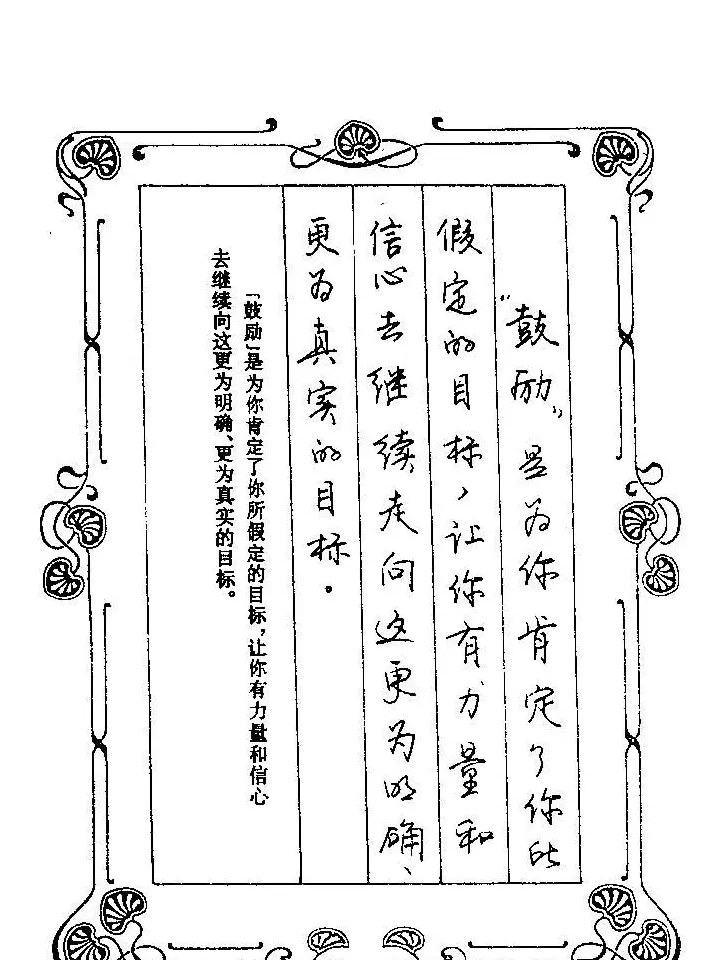 “鼓励”是为你肯定了你所
假定的目标，让你有力量和
信心去继续走向这更为明确、
更为真实的目标。
「鼓励」是为你肯定了你所假定的目标，让你有力量和信心
去继续向这更为明确、更为真实的目标。